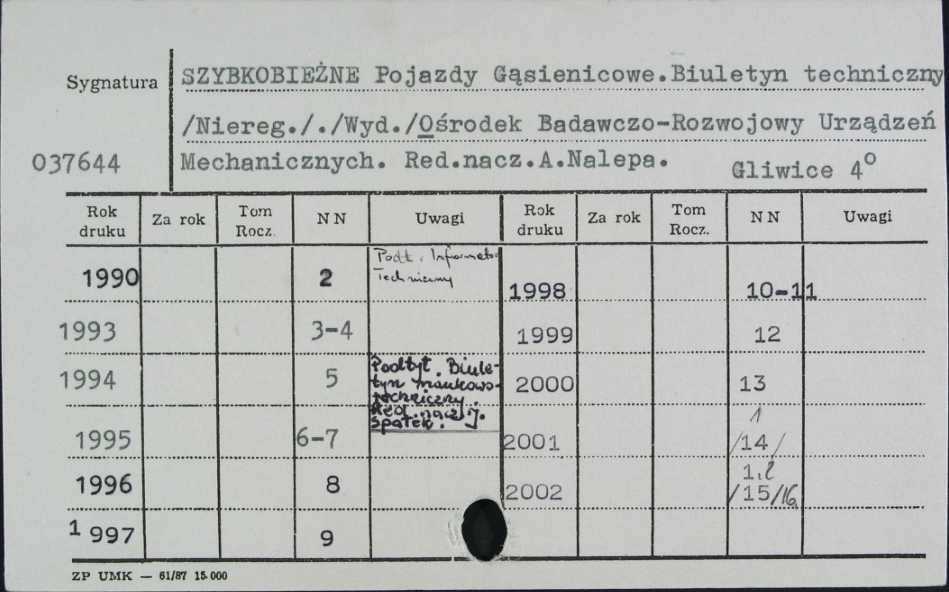 Sygnatura
SZYBKOBIEŻNE Pojazdy Gąsienicowe.Biuletyn techniczny
/Niereg./,/Wyd./Ośrodek Badawczo-Rozwojowy Urządzeń
037644
Mechanicznych. Red.nacz.A.Nalepa. Gliwice 4°
Rok druku Za rok Tom Rocz. N N Uwagi Rok druku Za rok Tom Rocz. N N Uwagi
1990 2 Podt. Informator Techniczny 1998 10-11
1993 3-4 1999 12
1994 5 Podtyt. Biuletyn naukowo-techniczny. Red. nacz. J. Spałek. 2000 13
1995 6-7 2001 1 /14/
1996 8 2002 1,2 /15/16
1997 9
ZP UMK — 61/87 15.000